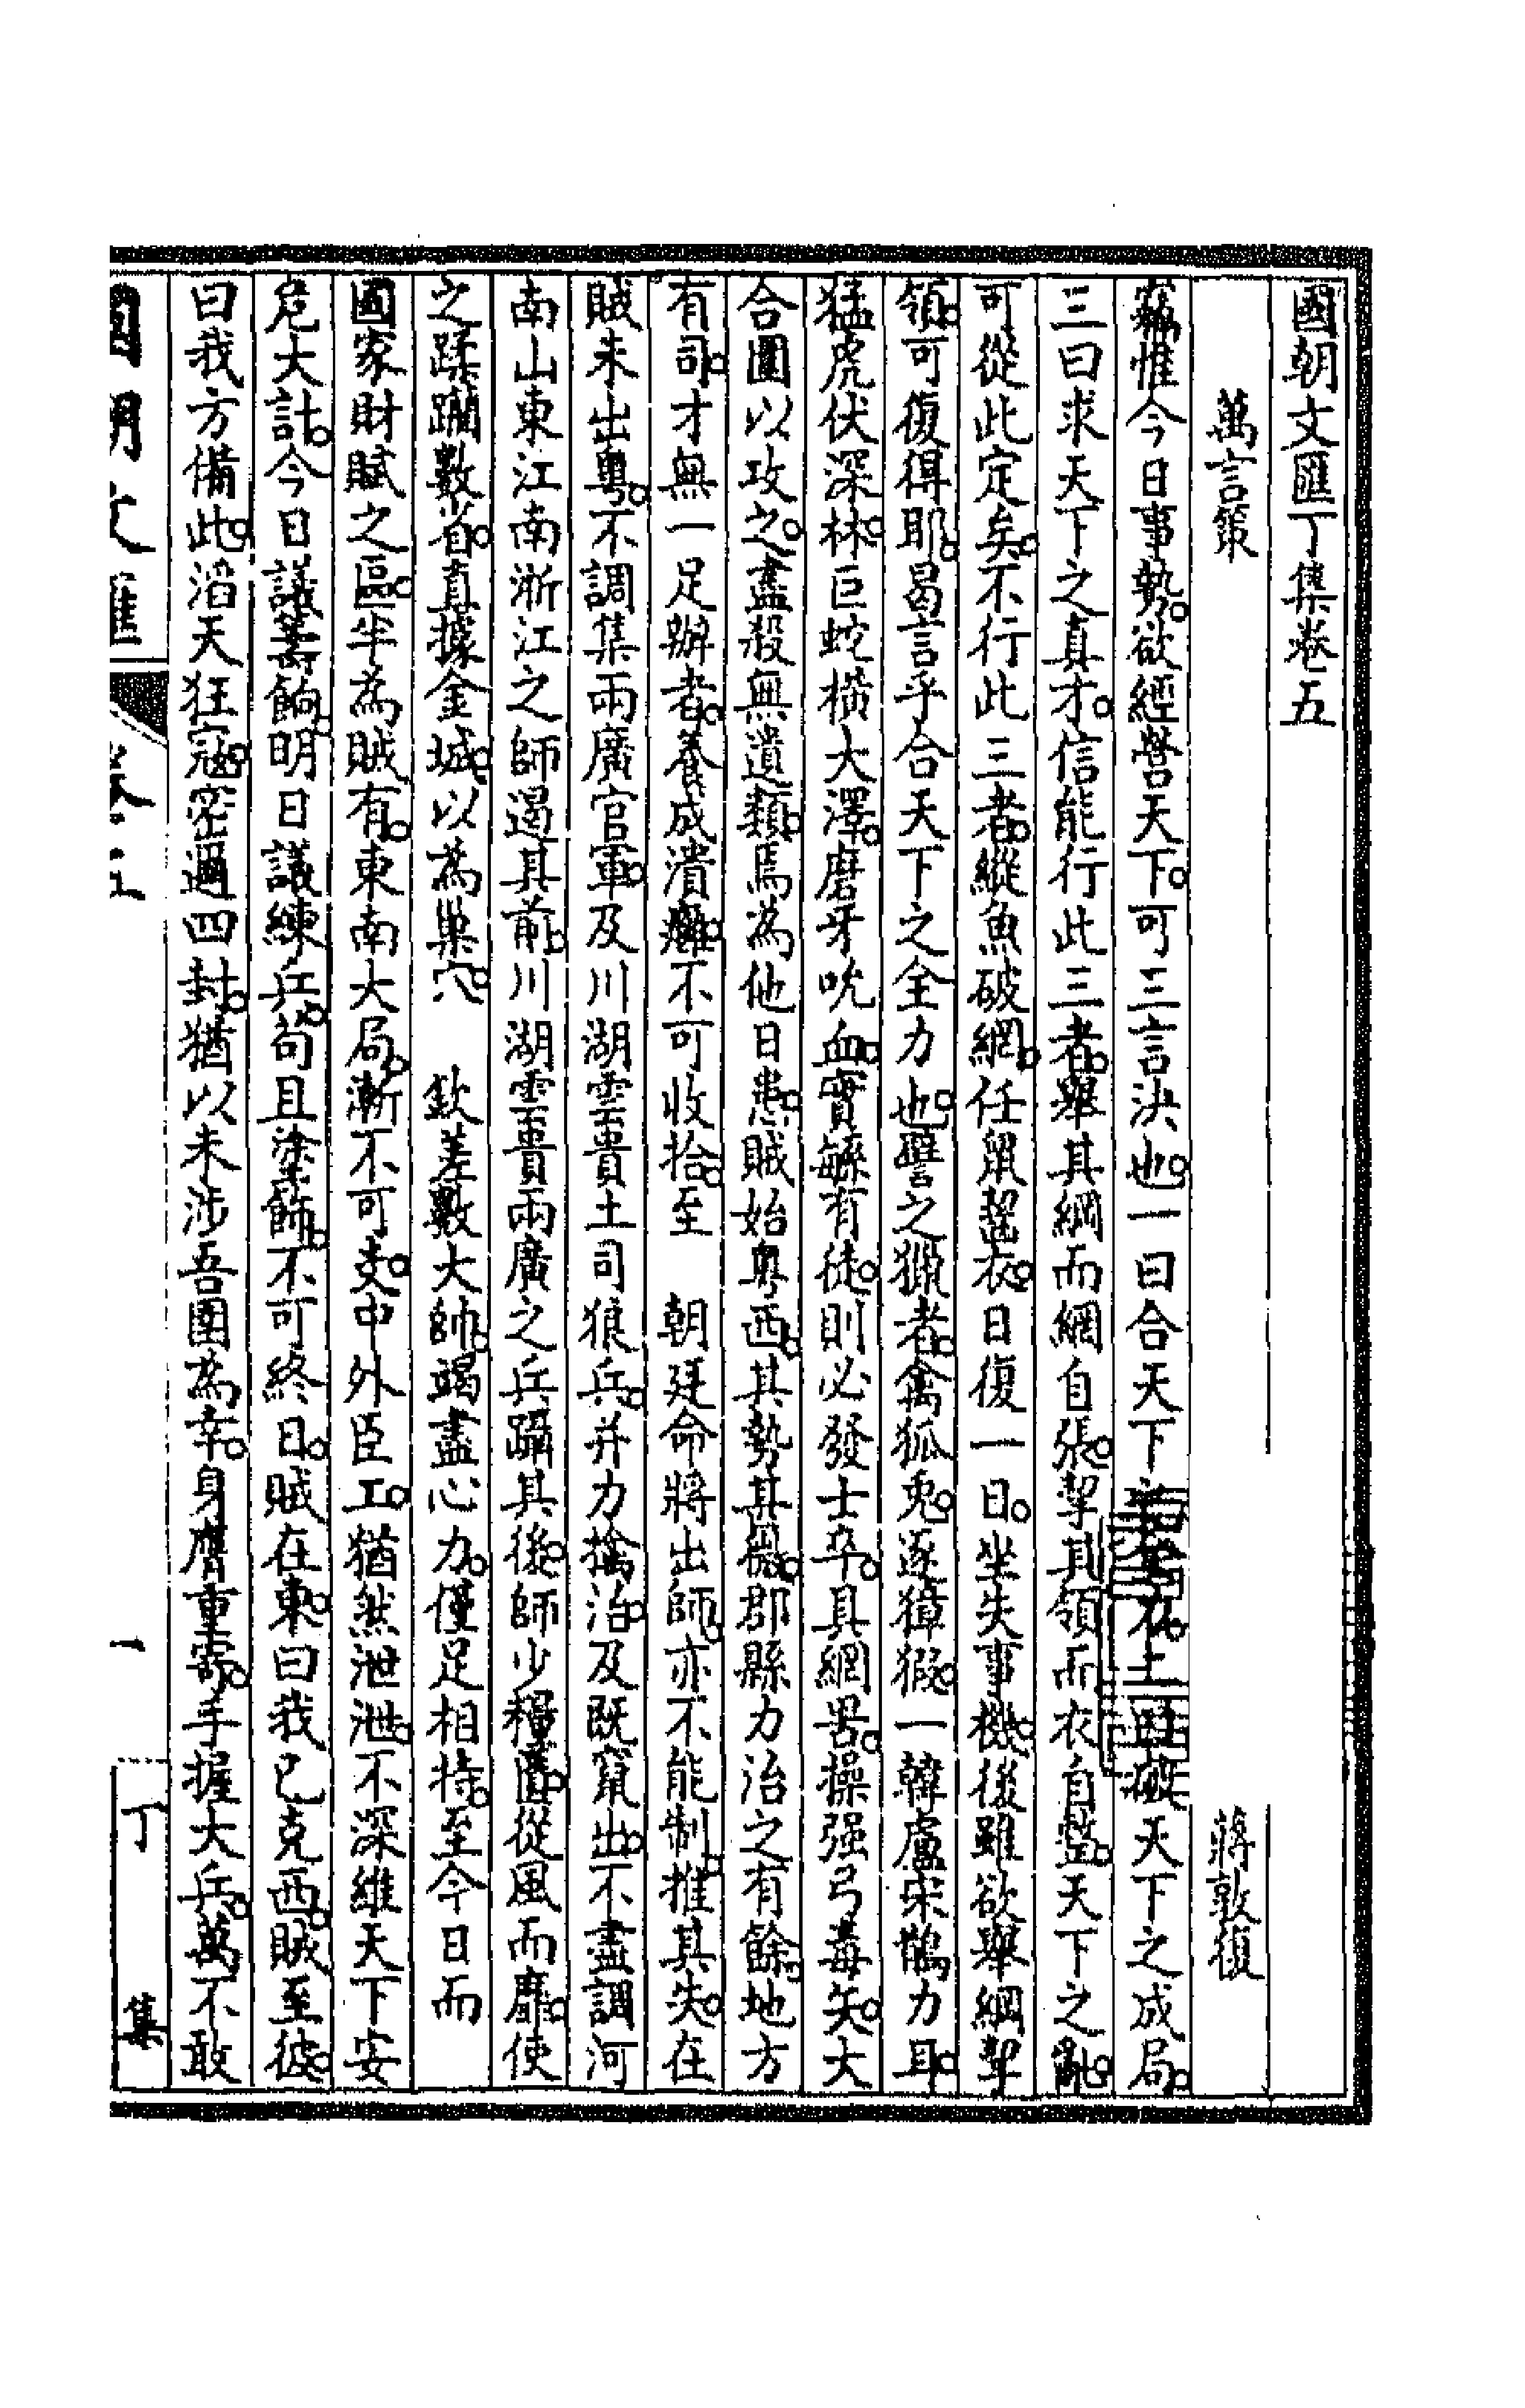 國朝文匯丁集卷五
萬言策 蔣敦復
竊惟今日事勢。欲經營天下。可三言決也。一曰合天下之全力。二曰破天下之成局。
三曰求天下之真才。信能行此三者。舉其綱而網自張。挈其領而衣自整。天下之亂。
可從此定矣。不行此三者。縱魚破網。任鼠齧衣。日復一日。坐失事機。後雖欲舉綱挈
領。可復得耶。曷言乎合天下之全力也。譬之獵者。禽狐兔。逐獐猳。一韓盧宋鵲力耳。
猛虎伏深林。巨蛇橫大澤。磨牙吮血。實繁有徒。則必發士卒。具網罟。操强弓毒矢。大
合圍以攻之。盡殺無遺類。焉為他日患。賊始粵西。其勢甚微。郡縣力治之有餘。地方
有司。才無一足辦者。養成潰癰。不可收拾。至 朝廷命將出師。亦不能制。推其失。在
賊未出粵。不調集兩廣官軍。及川湖雲貴土司狼兵。并力擒治。及既竄出。不盡調河
南山東江南浙江之師遏其前。川湖雲貴兩廣之兵躡其後。師少糧匱。從風而靡。使
之蹂躪數省。直據金城。以為巢穴。 欽差數大帥。竭盡心力。僅足相持。至今日而
國家財賦之區。半為賊有。東南大局。漸不可支。中外臣工。猶然泄泄。不深維天下安
危大計。今日議籌餉。明日議練兵。苟且塗飾。不可終日。賊在東。曰我已克西。賊至彼。
曰我方備此。滔天狂寇。密邇四封。猶以未涉吾圉為幸。身膺重寄。手握大兵。萬不敢
國朝文匯 卷五 一 丁集